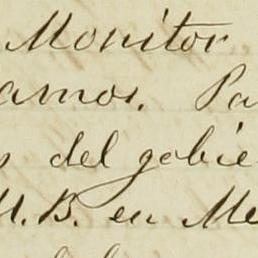 Monitor
amos. Pa
s del gobie
M.B. en Me